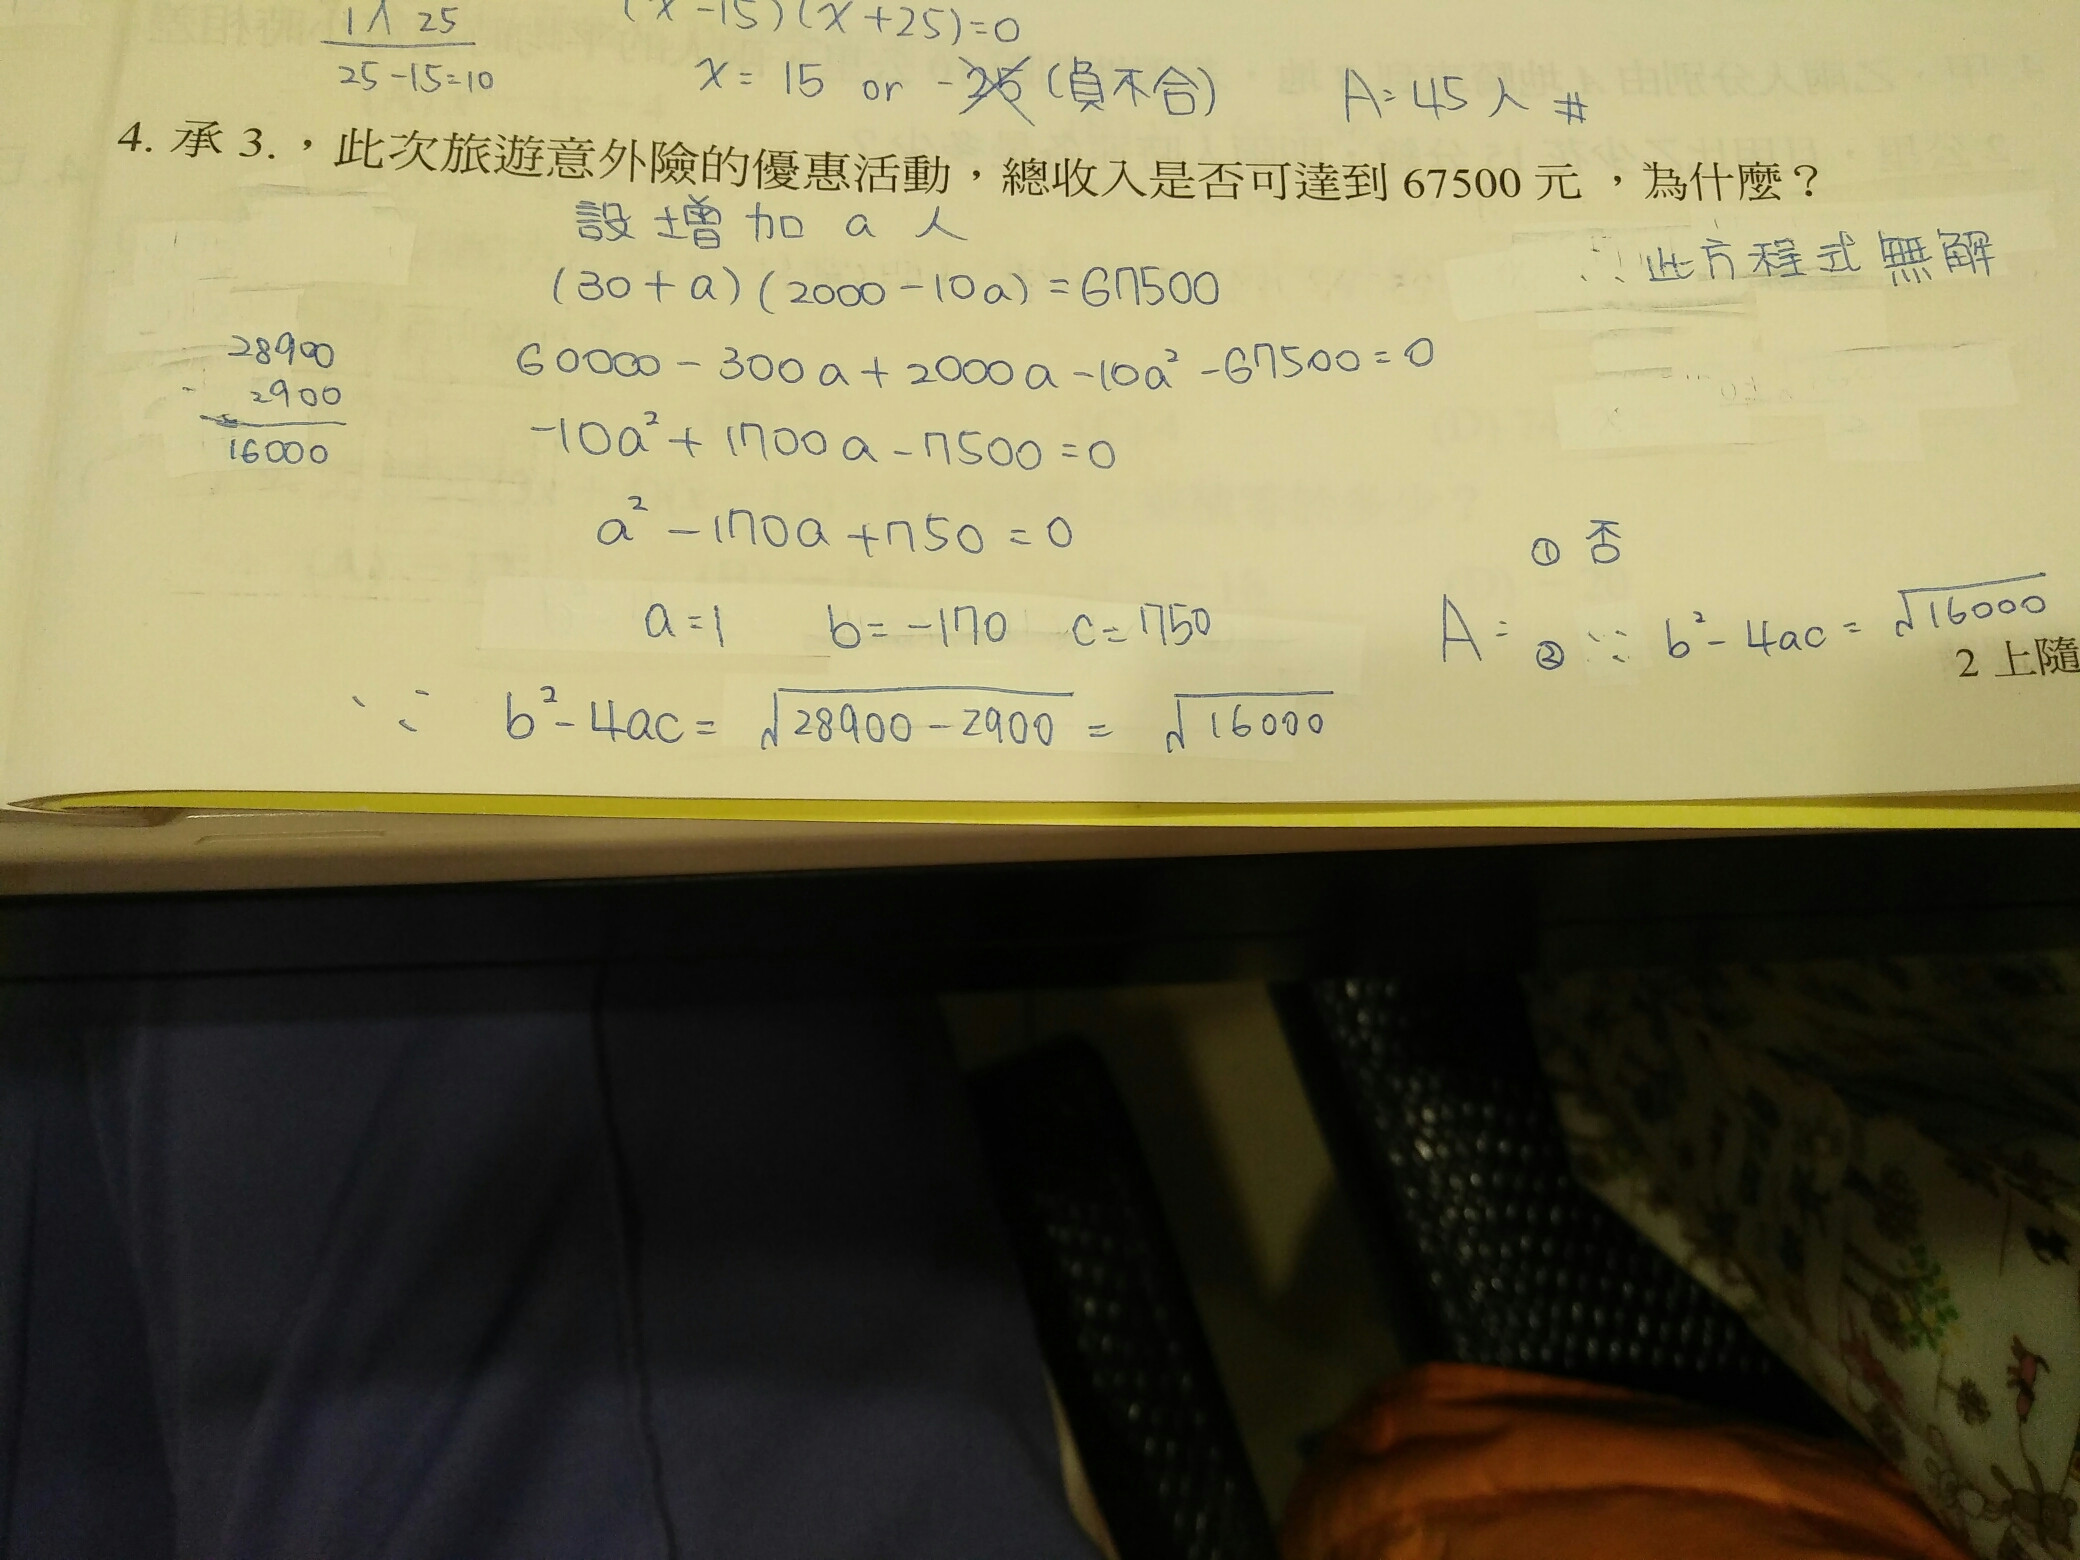 1 ⋀ 25
25-15=10
(x-15)(x+25)=0
x=15 or -25 (負不合) A=45人 #
4. 承 3.，此次旅遊意外險的優惠活動，總收入是否可達到 67500 元，為什麼？
設增加 a 人
(30+a)(2000-10a)=67500
60000-300a+2000a-10a²-67500=0
-10a²+1700a-7500=0
a²-170a+750=0
a=1 b=-170 c=750
∵ b²-4ac=√28900-2900=√16000
28900
- 2900
16000
∴此方程式無解
A: ① 否
② ∵ b²-4ac=√16000
2 上隨